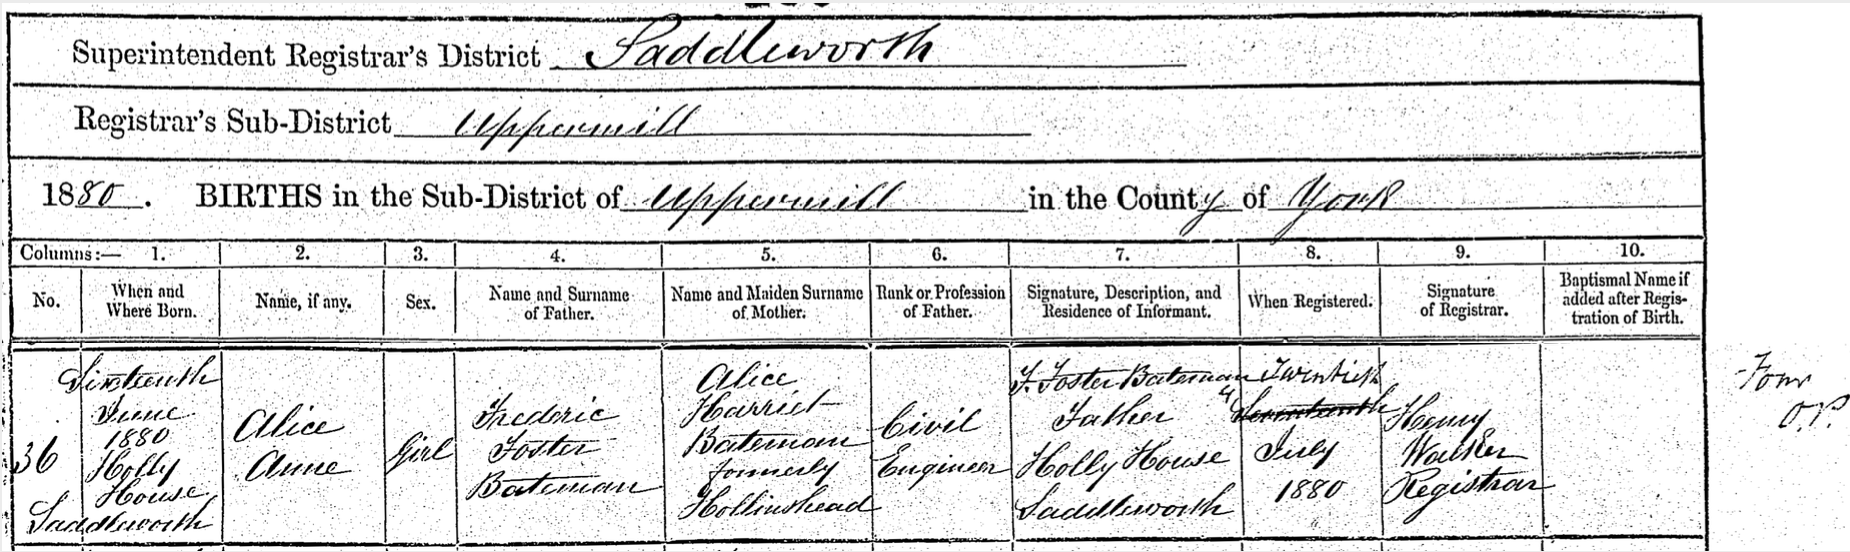 Superintendent Registrar's District Saddleworth
Registrar's Sub-District Uppermill
1880. BIRTHS in the Sub-District of Uppermill in the County of York
Columns:— 1. 2. 3. 4. 5. 6. 7. 8. 9. 10.
No.
When and
Where Born.
Name, if any.
Sex.
Name and Surname
of Father.
Name and Maiden Surname
of Mother.
Rank or Profession
of Father.
Signature, Description, and
Residence of Informant.
When Registered.
Signature
of Registrar.
Baptismal Name if
added after Regis-
tration of Birth.
36
Sixteenth
June
1880
Holly
House
Saddleworth
Alice
Anne
Girl
Frederic
Foster
Bateman
Alice
Harriet
Bateman
formerly
Hollinshead
Civil
Engineer
F. Foster Bateman
Father
Holly House
Saddleworth
Twentieth
Seventeenth
July
1880
Henry
Walker
Registrar
Four